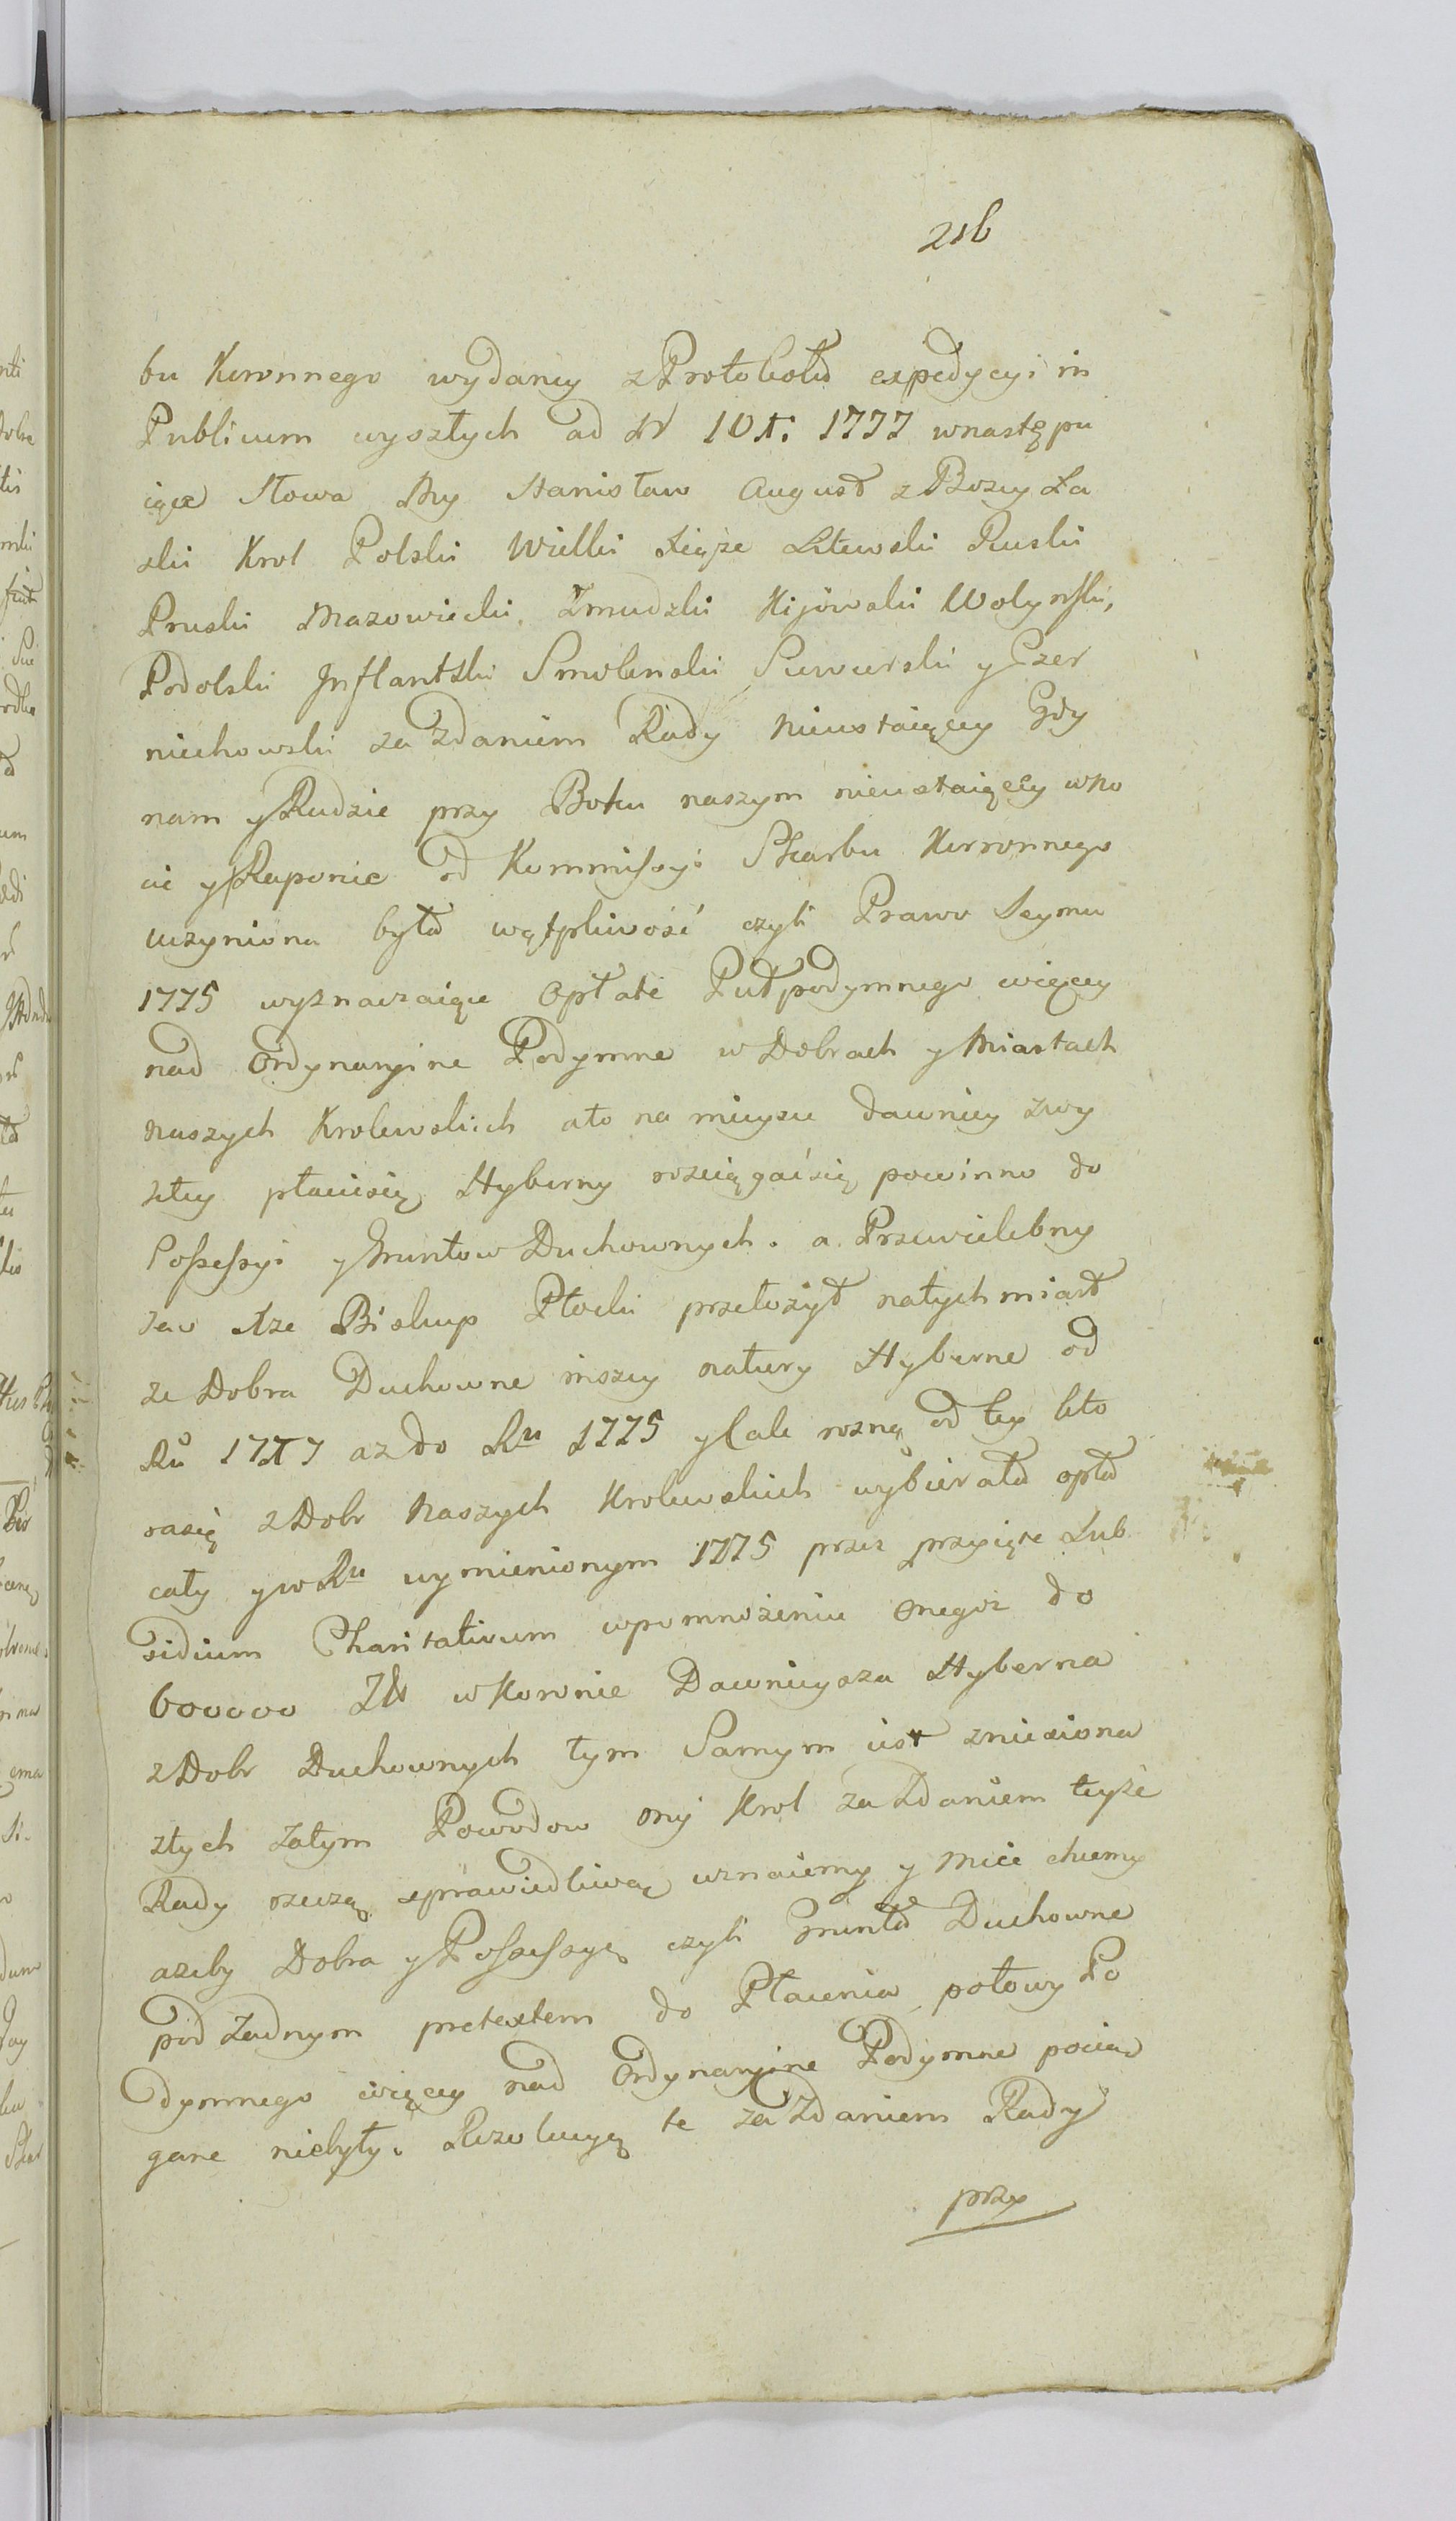 216
bu Koronnego wydaney z Protokołu expedycyi in
Publicum wyszłych ad N 101: 1777 wnastępu
iące Słowa My Stanisław August z Bozey Ła
ski Krol Polski Wielki Xiąże Litewski Ruski
Pruski Mazowiecki, Zmudzki Kijowski Wołynski,
Podolski Inflantski Smolenski Siewierski y Czer
niechowski za Zdaniem Rady Nieustaiącey Gdy
nam y Radzie przy Boku naszym nieustaiącey w No
cie y Raporcie od Kommissyi Skarbu Korronnego
uczyniona była wątpliwość czyli Prawo Seymu
1775 wyznaczaiące Opłatę Pułpodymnego więcey
nad Ordynaryine Podymne w Dobrach y Miastach
Naszych Krolewskich ato na mieysce dawniey zwy
kłey płacisię Hyberny rosciągaćsię powinno do
Possessyi y Gruntow Duchownych. a Przewielebny
Xże Biskup Płocki przełozył natychmiast
ze Dobra Duchowne inszey natury Hyberne od
Ru 1717 az do Ru 1775 y Cale rozną od tey kto
rasię z Dobr Naszych Krolewskich wybierała opła
cały y w Ru wymienionym 1775 przez przyięte Sub
sidium Charitativum wpomnożeniu onegoz do
600000 Zł w Koronie Dawnieysza Hyberna
z Dobr Duchownych tym Samym iest zniesiona
ztych Zatym Powodow My Krol za Zdaniem teyże
Rady rzeczą sprawiedliwą uznaiemy y Mieć chcemy
azeby Dobra y Possessye czyli Grunta Duchowne
pod Zadnym pretextem do Płacenia połowy Po
dymnego więcey nad Ordynaryine Podymne pocią
gane niebyły. Rezolucyę te za Zdaniem Rady
przy